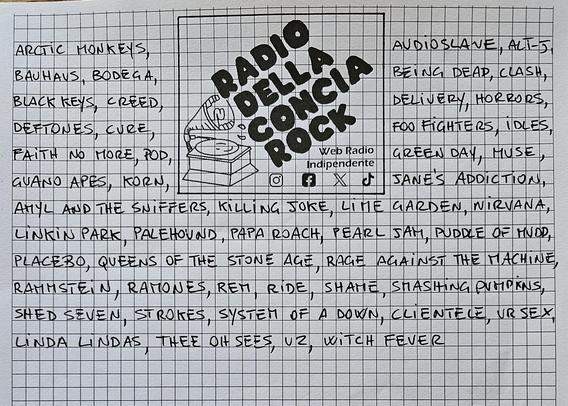 ARCTIC MONKEYS,
BAUHAUS, BODEGA,
BLACK KEYS, CREED,
DEFTONES, CURE,
FAITH NO MORE, POD,
GUANO APES, KORN,
RADIO
DELLA
CONCIA
ROCK
Web Radio
Indipendente
AUDIOSLAVE, ALT-J,
BEING DEAD, CLASH,
DELIVERY, HORRORS,
FOO FIGHTERS, IDLES,
GREEN DAY, MUSE,
JANE'S ADDICTION,
AMYL AND THE SNIFFERS, KILLING JOKE, LIME GARDEN, NIRVANA,
LINKIN PARK, PALEHOUND, PAPA ROACH, PEARL JAM, PUDDLE OF MUDD,
PLACEBO, QUEENS OF THE STONE AGE, RAGE AGAINST THE MACHINE,
RAMMSTEIN, RAMONES, REM, RIDE, SHAME, SMASHING PUMPKINS,
SHED SEVEN, STROKES, SYSTEM OF A DOWN, CLIENTELE, VR SEX,
LINDA LINDAS, THEE OH SEES, U2, WITCH FEVER